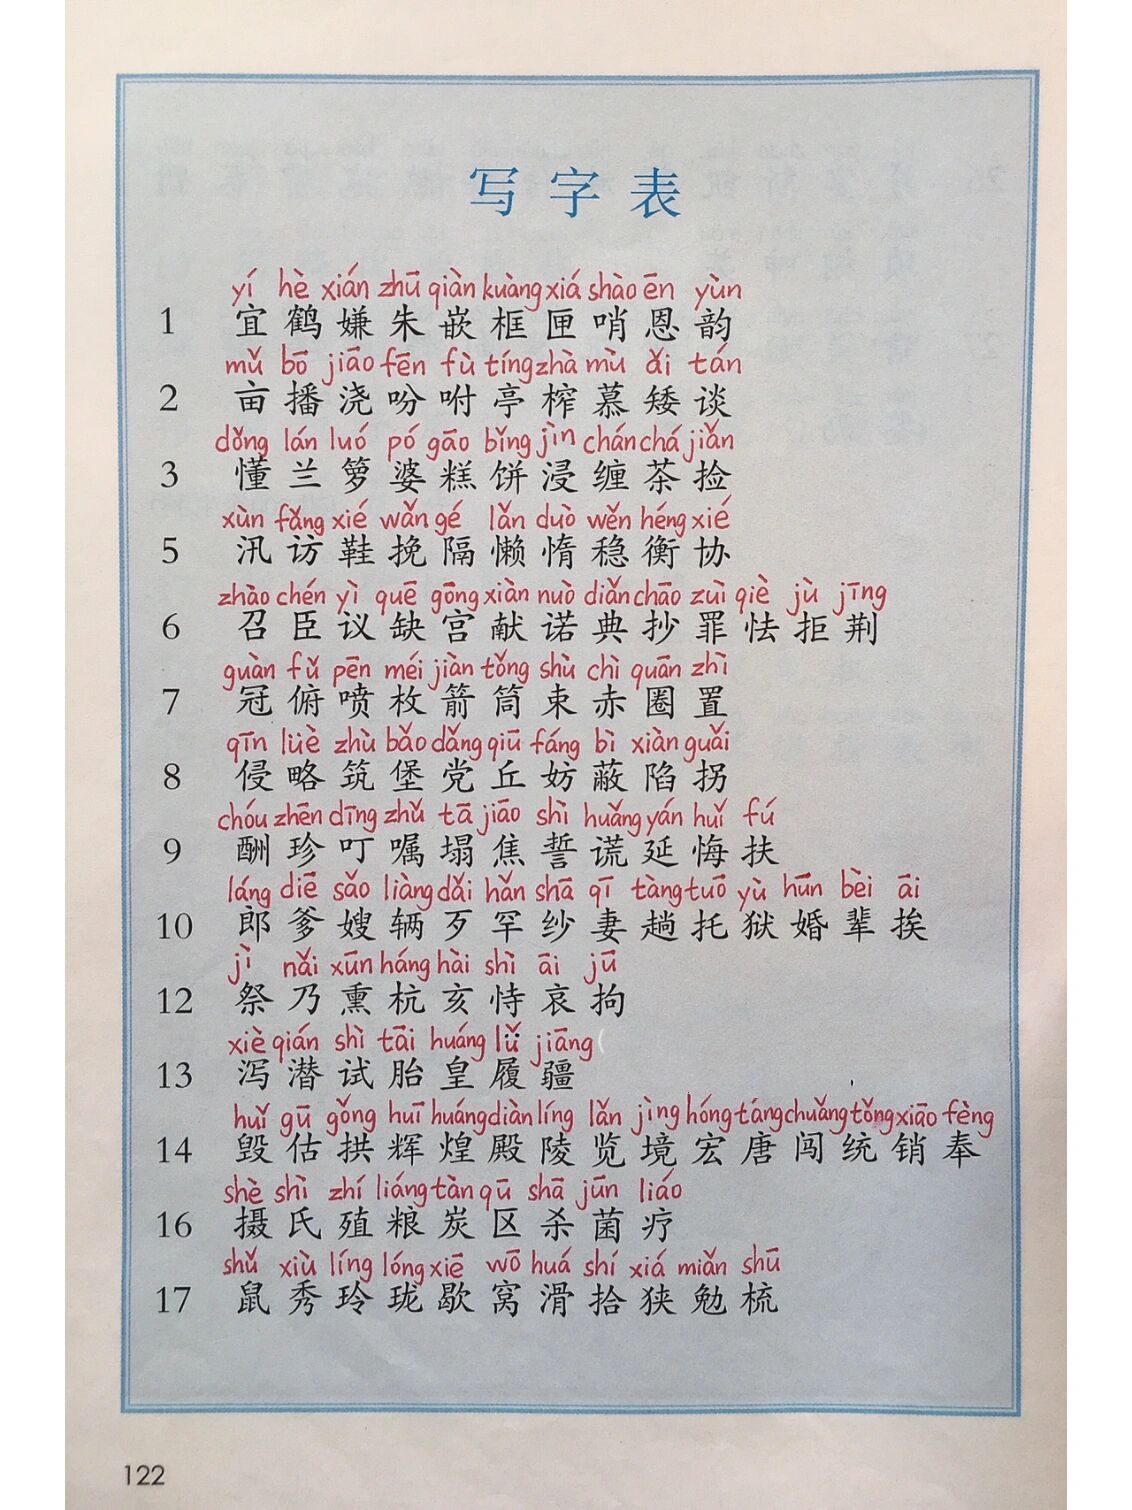 写字表
yí hè xián zhū qiàn kuàng xiá shào ēn yùn
1 宜 鹤 嫌 朱 嵌 框 匣 哨 恩 韵
mǔ bō jiāo fēn fù tíng zhà mù ǎi tán
2 亩 播 浇 吩 咐 亭 榨 慕 矮 谈
dǒng lán luó pó gāo bǐng jìn chán chá jiǎn
3 懂 兰 箩 婆 糕 饼 浸 缠 茶 捡
xùn fǎng xié wǎn gé lǎn duò wěn héng xié
5 汛 访 鞋 挽 隔 懒 惰 稳 衡 协
zhào chén yì quē gōng xiàn nuò diǎn chāo zuì qiè jù jīng
6 召 臣 议 缺 宫 献 诺 典 抄 罪 怯 拒 荆
guàn fǔ pēn méi jiàn tǒng shù chì quān zhì
7 冠 俯 喷 枚 箭 筒 束 赤 圈 置
qīn lüè zhù bǎo dǎng qiū fáng bì xiàn guǎi
8 侵 略 筑 堡 党 丘 妨 蔽 陷 拐
chóu zhēn dīng zhǔ tā jiāo shì huǎng yán huǐ fú
9 酬 珍 叮 嘱 塌 焦 誓 谎 延 悔 扶
láng diē sǎo liàng dǎi hǎn shā qī tàng tuō yù hūn bèi āi
10 郎 爹 嫂 辆 歹 罕 纱 妻 趟 托 狱 婚 辈 挨
jì nǎi xūn háng hài shì āi jū
12 祭 乃 熏 杭 亥 恃 哀 拘
xiè qián shì tāi huáng lǚ jiāng
13 泻 潜 试 胎 皇 履 疆
huǐ gū gǒng huī huáng diàn líng lǎn jìng hóng táng chuǎng tǒng xiāo fèng
14 毁 估 拱 辉 煌 殿 陵 览 境 宏 唐 闯 统 销 奉
shè shì zhí liáng tàn qū shā jūn liáo
16 摄 氏 殖 粮 炭 区 杀 菌 疗
shǔ xiù líng lóng xiē wō huá shí xiá miǎn shū
17 鼠 秀 玲 珑 歇 窝 滑 拾 狭 勉 梳
122